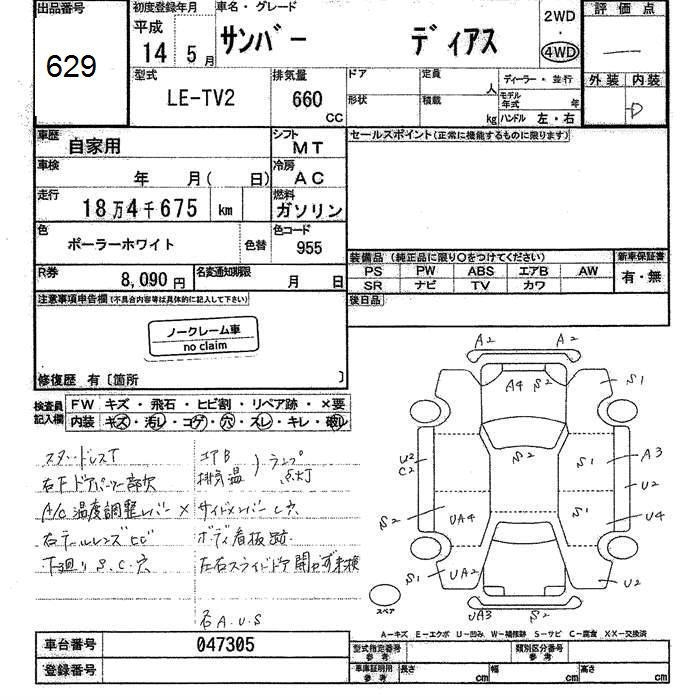 出品番号
629
初度登録年月
平成
14 5月
車名・グレード
サンバー ディアス
2WD
・
4WD
評価点
外装 内装
D
型式
LE-TV2
排気量
660
CC
ドア
形状
定員
人
積載
kg
ディーラー・並行
モデル年式 年
ハンドル 左・右
車歴
自家用
シフト
MT
車検
年 月( 日)
冷房
AC
走行
18万4千675 km
燃料
ガソリン
色
ポーラーホワイト
色替
色コード
955
R券
8,090円
名変通知期限
月 日
セールスポイント(正常に機能するものに限ります)
装備品(純正品に限り○をつけてください)
PS PW ABS エアB AW
SR ナビ TV カワ
新車保証書
有・無
後日品
注意事項申告欄(不具合内容等は具体的に記入して下さい)
ノークレーム車
no claim
修復歴 有〔箇所 〕
検査員記入欄
FW キズ・飛石・ヒビ割・リペア跡・×要
内装 キズ・汚レ・コゲ・穴・スレ・キレ・破レ
スタッドレスT
右FドアバイザーR欠
A/C温度調整レバー×
右テールレンズヒビ
下廻りS.C.穴
エアB
排気温
ランプ点灯
サイドメンバーL穴
ボディ看板跡
左右スライドドア開かず未検
右A.U.S
A2 A2
A4 S2
S1
S2
U2
C2
S1
A3
U2
S2
UA4
S1
U4
S1
UA2
U2
UA3
S2
スペア
A-キズ E-エクボ U-凹み W-補修跡 S-サビ C-腐食 XX-交換済
車台番号
047305
登録番号
型式指定番号
参考
類別区分番号
車庫証明用
参考
長さ cm
幅 cm
高さ cm